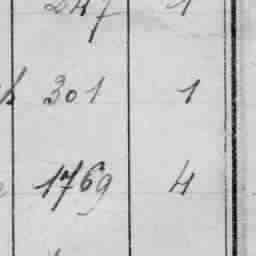 247 1
301 1
1769 4